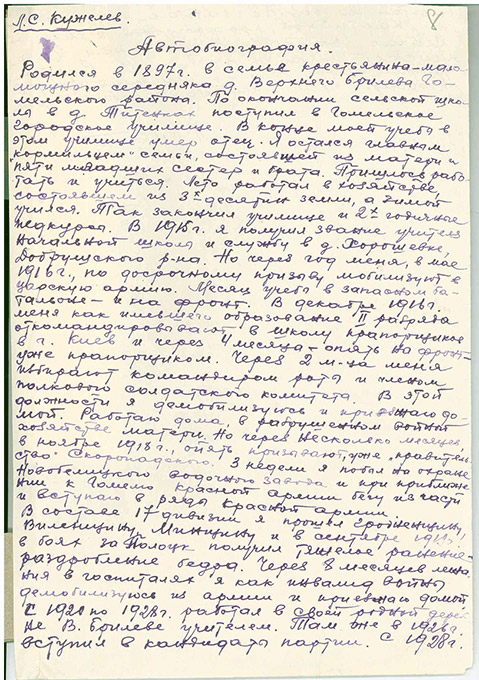 Л.С. Кужелев.
8
Автобиография.
Родился в 1897г. в семье крестьянина-мало-
мощного середняка д. Верхнего Брилева Го-
мельского района. По окончании сельской шко-
лы в д. поступил в Гомельское
городское училище. В конце моей учебы в
этом училище умер отец. Я остался главным
„кормильцем" семьи, состоявшей из матери и
пяти младших сестер и брата. Пришлось рабо-
тать и учиться. Лето работал в хозяйстве,
состоявшем из 3х десятин земли, а зимой
учился. Так закончил училище и 2х годичные
педкурсы. В 1915г. я получил звание учителя
начальной школы и службу в д. Хорошевке,
Добрушского р-на. Но через год меня, в мае
1916г., по досрочному призыву мобилизуют в
царскую армию. Месяц учебы в запасном ба-
тальоне – и на фронт. В декабре 1916г.
меня как имевшего образование II разряда
откомандировывают в школу прапорщиков
в г. Киев и через 4 месяца – опять на фронт
уже прапорщиком. Через 2 м-ца меня
избирают командиром роты и членом
полкового солдатского комитета. В этой
должности я демобилизуюсь и приезжаю до-
мой. Работаю дома, в разрушенном войной
хозяйстве матери. Но через несколько месяцев
в ноябре 1918г. опять призывают, уже „правитель-
ство" Скоропадского. 3 недели я побыл на охране
Новобелицкого водочного завода и при приближе-
нии к Гомелю Красной армии бегу из части
и вступаю в ряды Красной армии.
В составе 17 дивизии я прошел Гродненщину,
Виленщину, Минщину и в сентябре 1919г.
в боях за Полоцк получил тяжелое ранение –
раздробление бедра. Через 8 месяцев лежа-
ния в госпиталях я как инвалид войны
демобилизуюсь из армии и приезжаю домой.
С 1920 по 1928г. работал в своей родной дерев-
не В. Брилеве учителем. Там же в 1926г.
вступил в кандидаты партии. С 1928г.